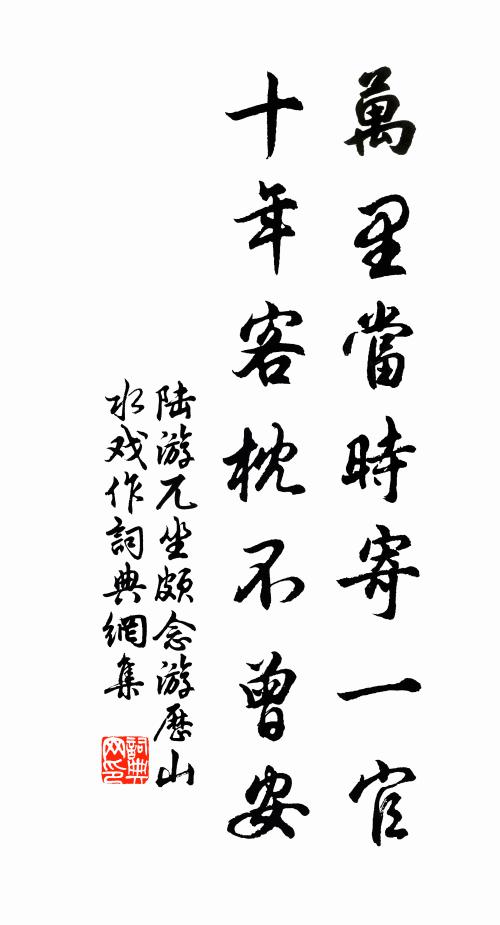 萬里當時寄一官
十年客枕不曾安
陆游兀坐頗念游歷山
水戏作詞典網集
詞典
网印